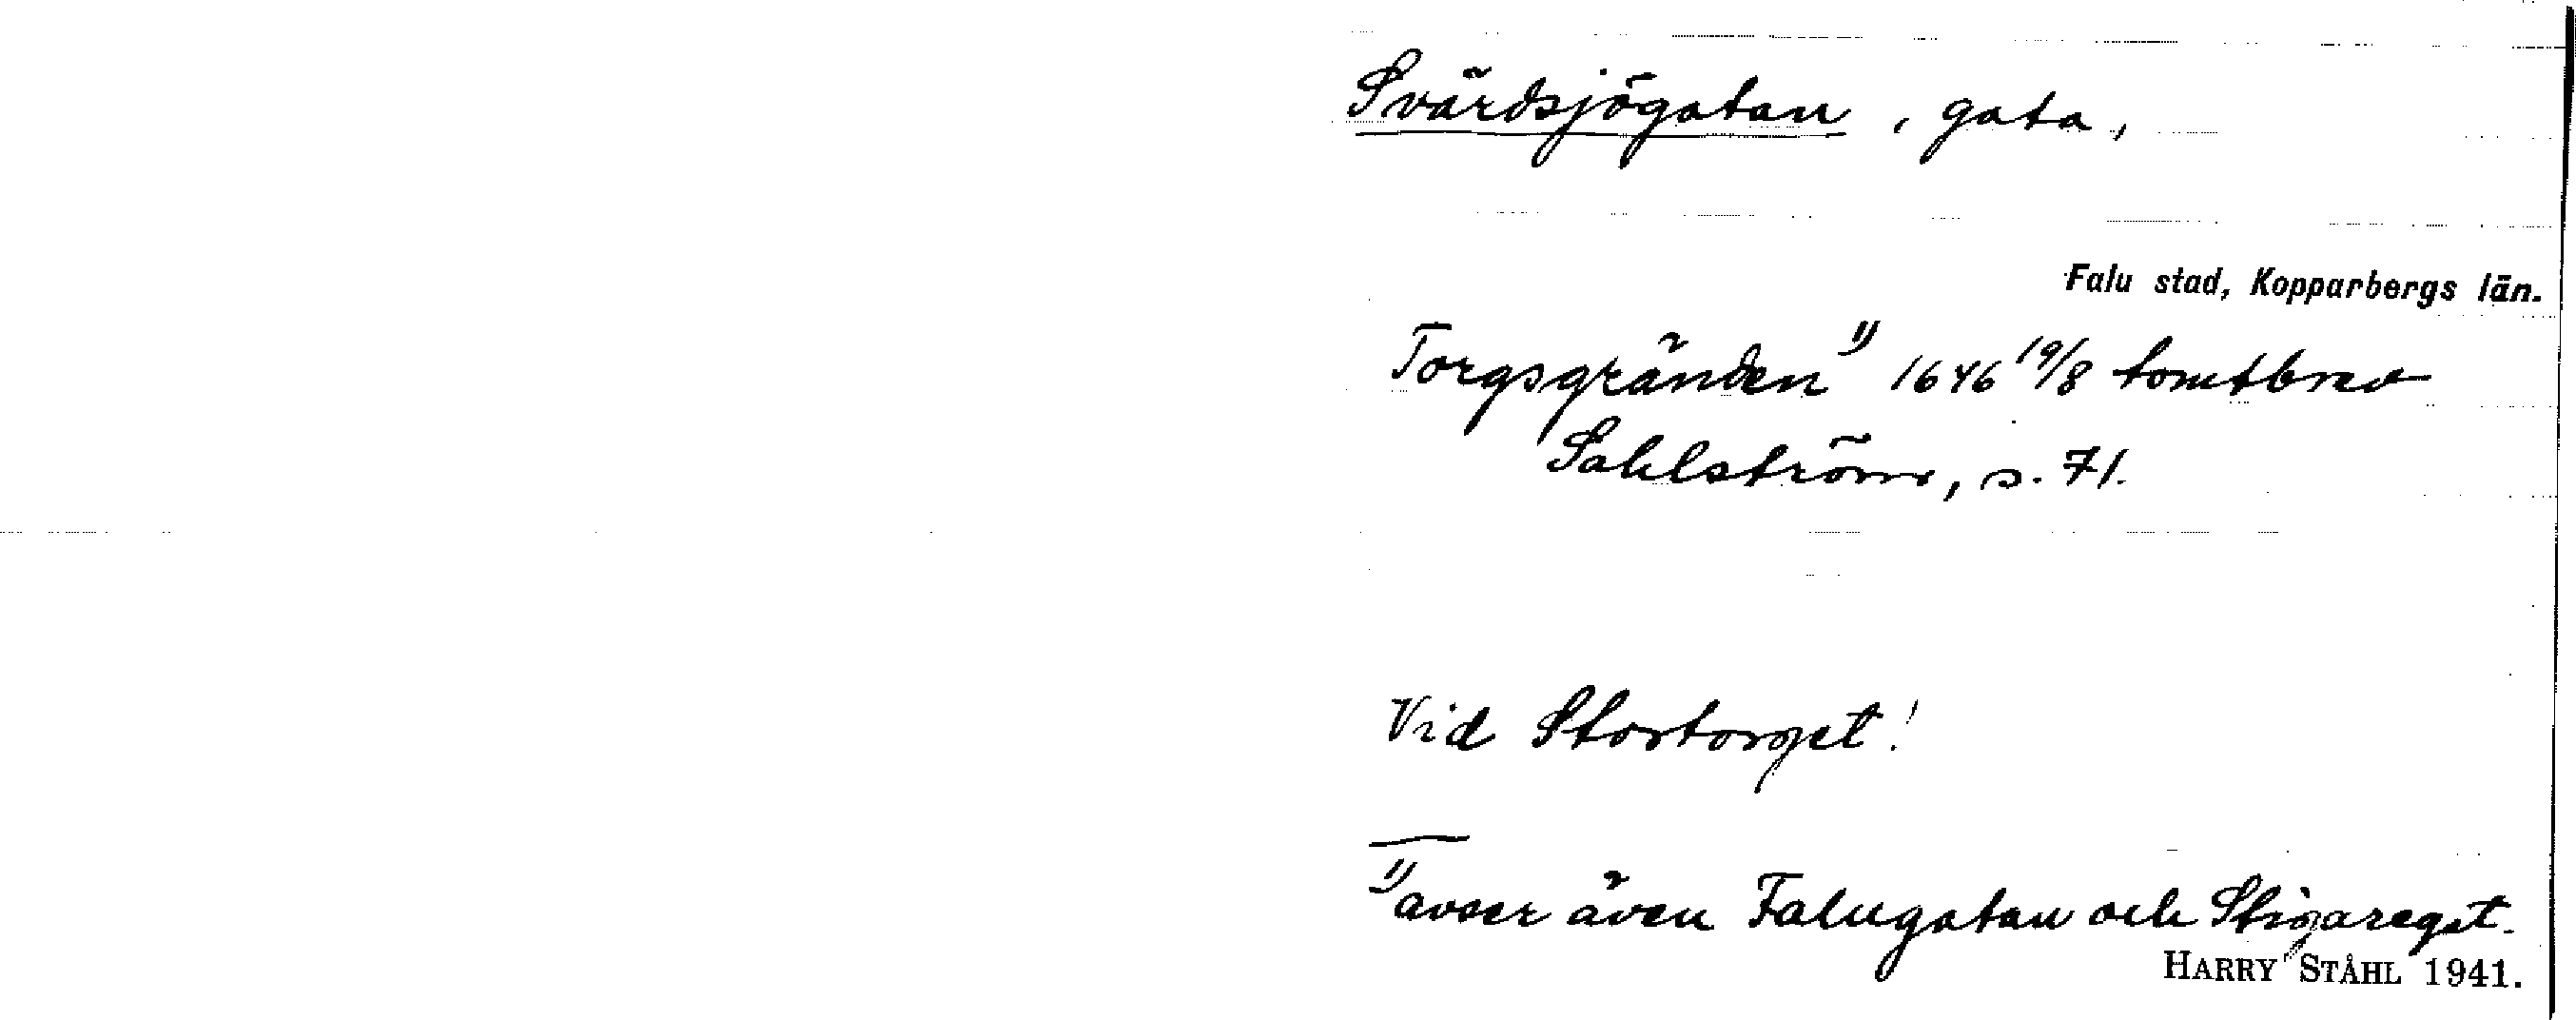 Svärdsjögatan, gata,
Falu stad, Kopparbergs län.
Torgsgränden 1) 1646 19/8 tomtbrev
Sahlström, s. 71.
Vid Stortorget!
1) avser även Falugatan och Stigaregat.
HARRY STÅHL 1941.